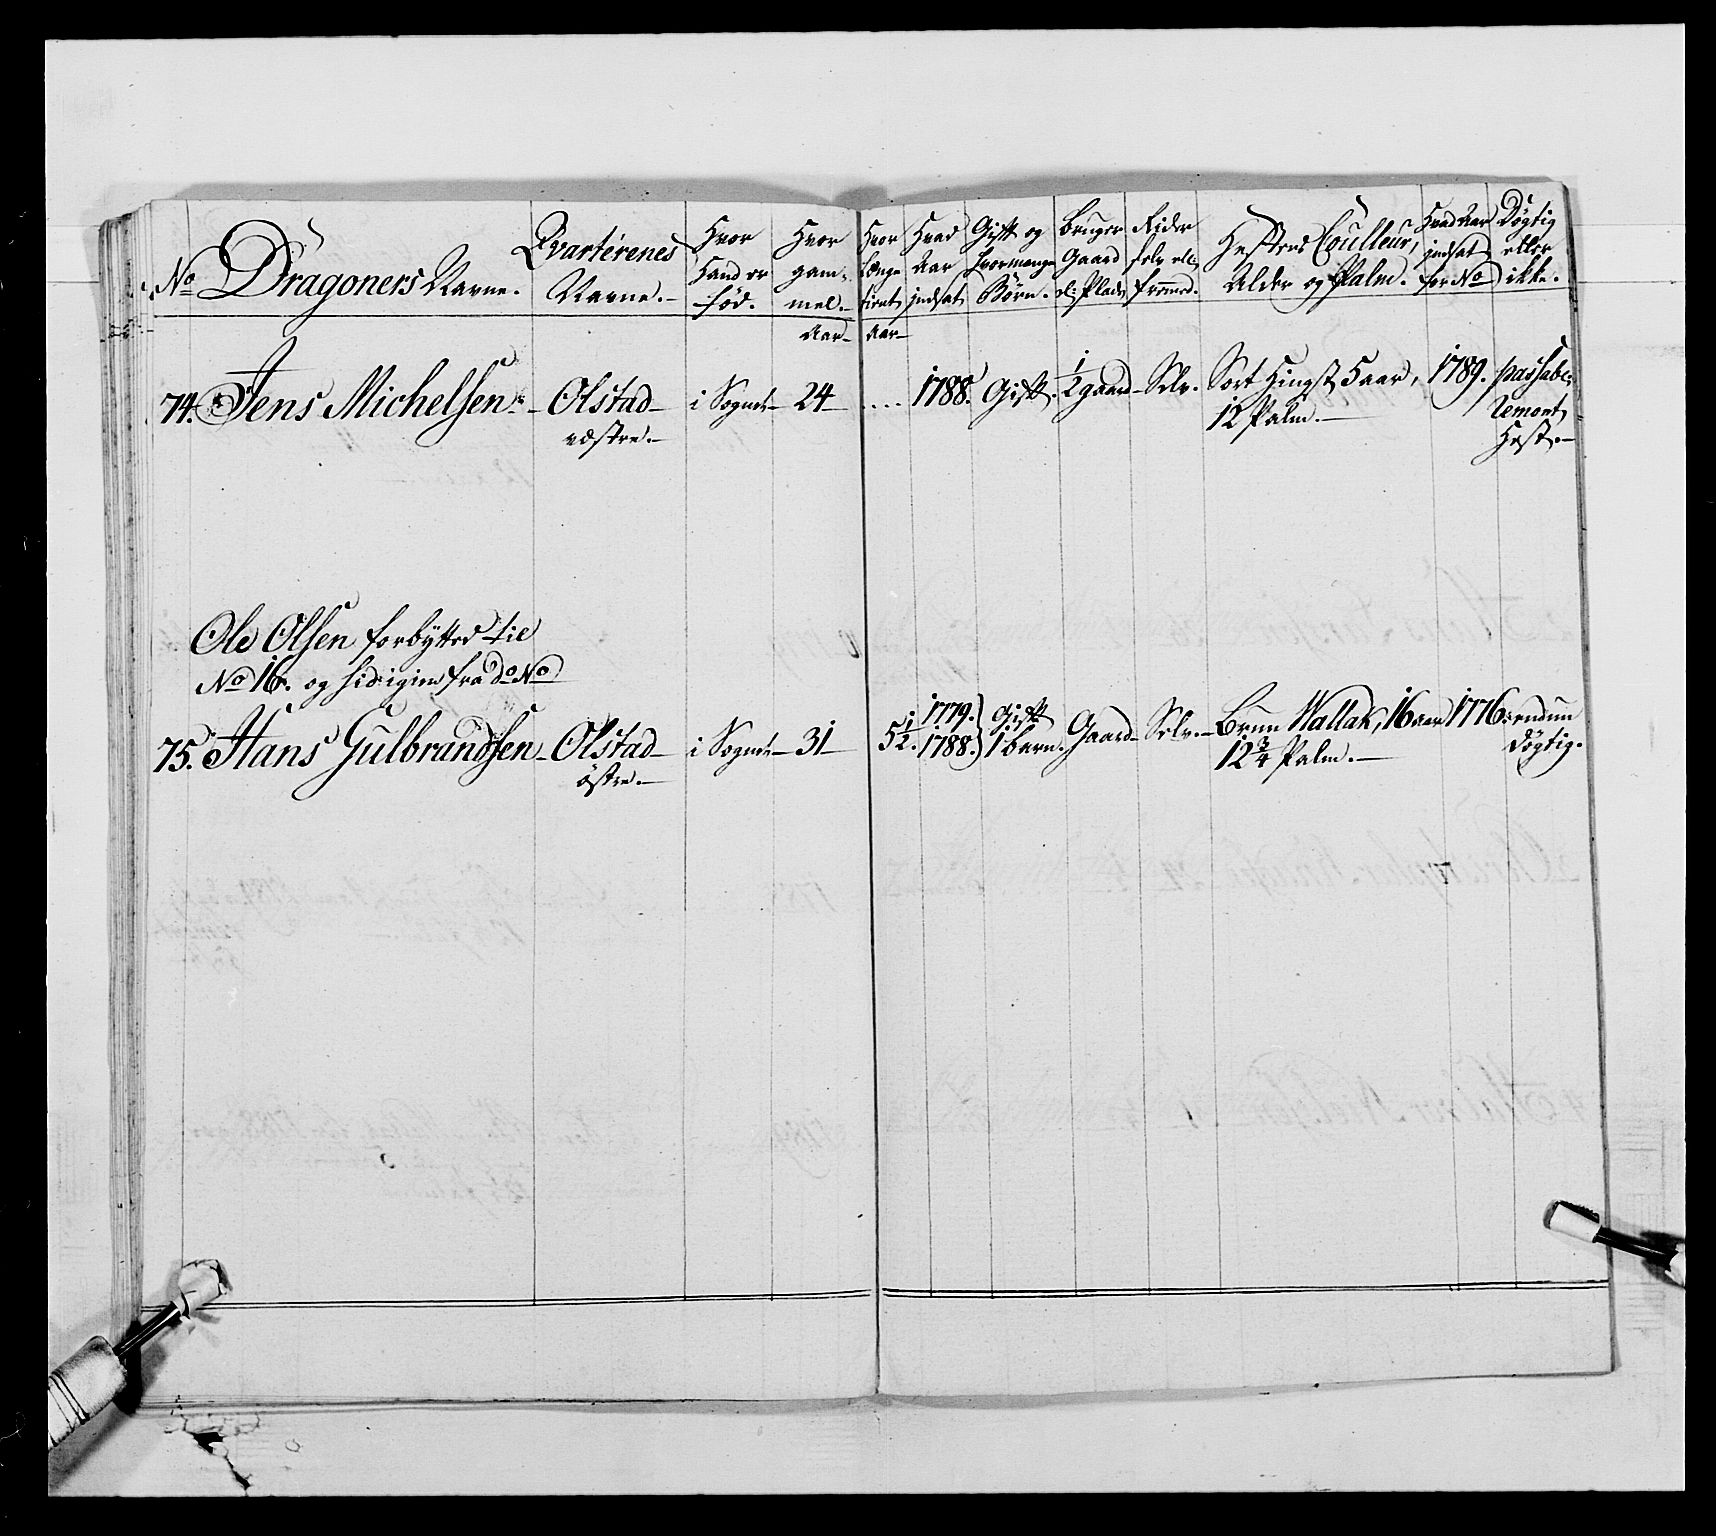 No Dragoners Navne. Qvarterenes Navne.- Hvor Hand er fød. Hvor gam- mel.- Aar- Hvor Længe tient Aar- Hvad Aar indsat Gift og hvormange Børn. Bruger Gaard el: Plads Rider selv ell: fremmed. Hestens Coulleur, Alder og Palm. Hvad Aar indsat for No Døgtig eller ikke.
74. Jens Michelsen - Olstad - i Sognet - 24 - .... 1788. Gift. 1/2 gaard - Selv. Sort Hingst 5 aar, 1789. passabel
væstre.- 12 Palm.- Remont
Hest.-
Ole Olsen forbytted til
No 16. og hid igien fra do No
75. Hans Gulbrandsen - Olstad - i Sognet - 31 - 5 1/2. 1779. 1788. Gift 1 barn. Gaard - Selv. - Brun Wallak, 16 aar 1776. endnu
østre.- 12 3/4 Palm.- Døgtig.